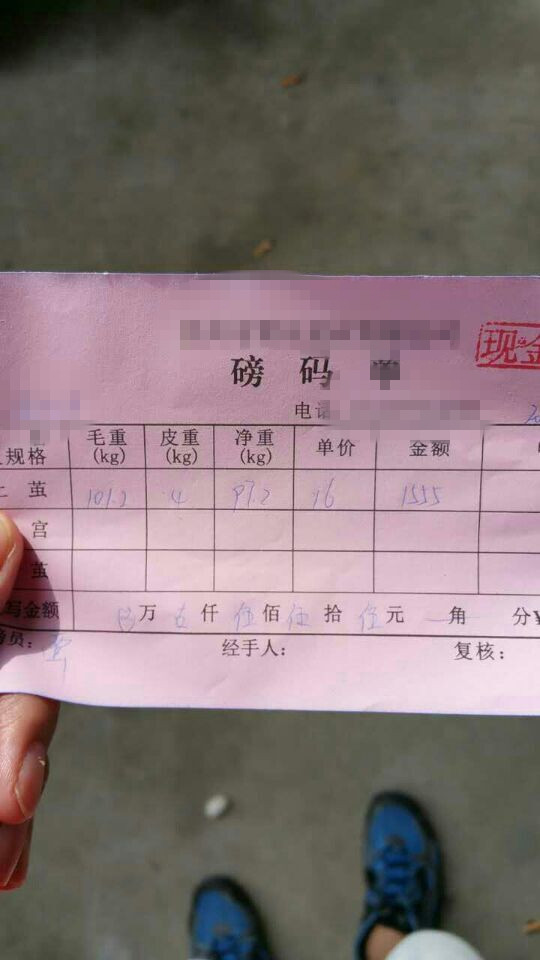 现金
磅 码 单
电话
规格 毛重(kg) 皮重(kg) 净重(kg) 单价 金额
上 茧 101.2 4 97.2 16 1555
宫
茧
写金额 万 仟 伍 佰 伍 拾 伍 元 角 分¥
员: 经手人: 复核: